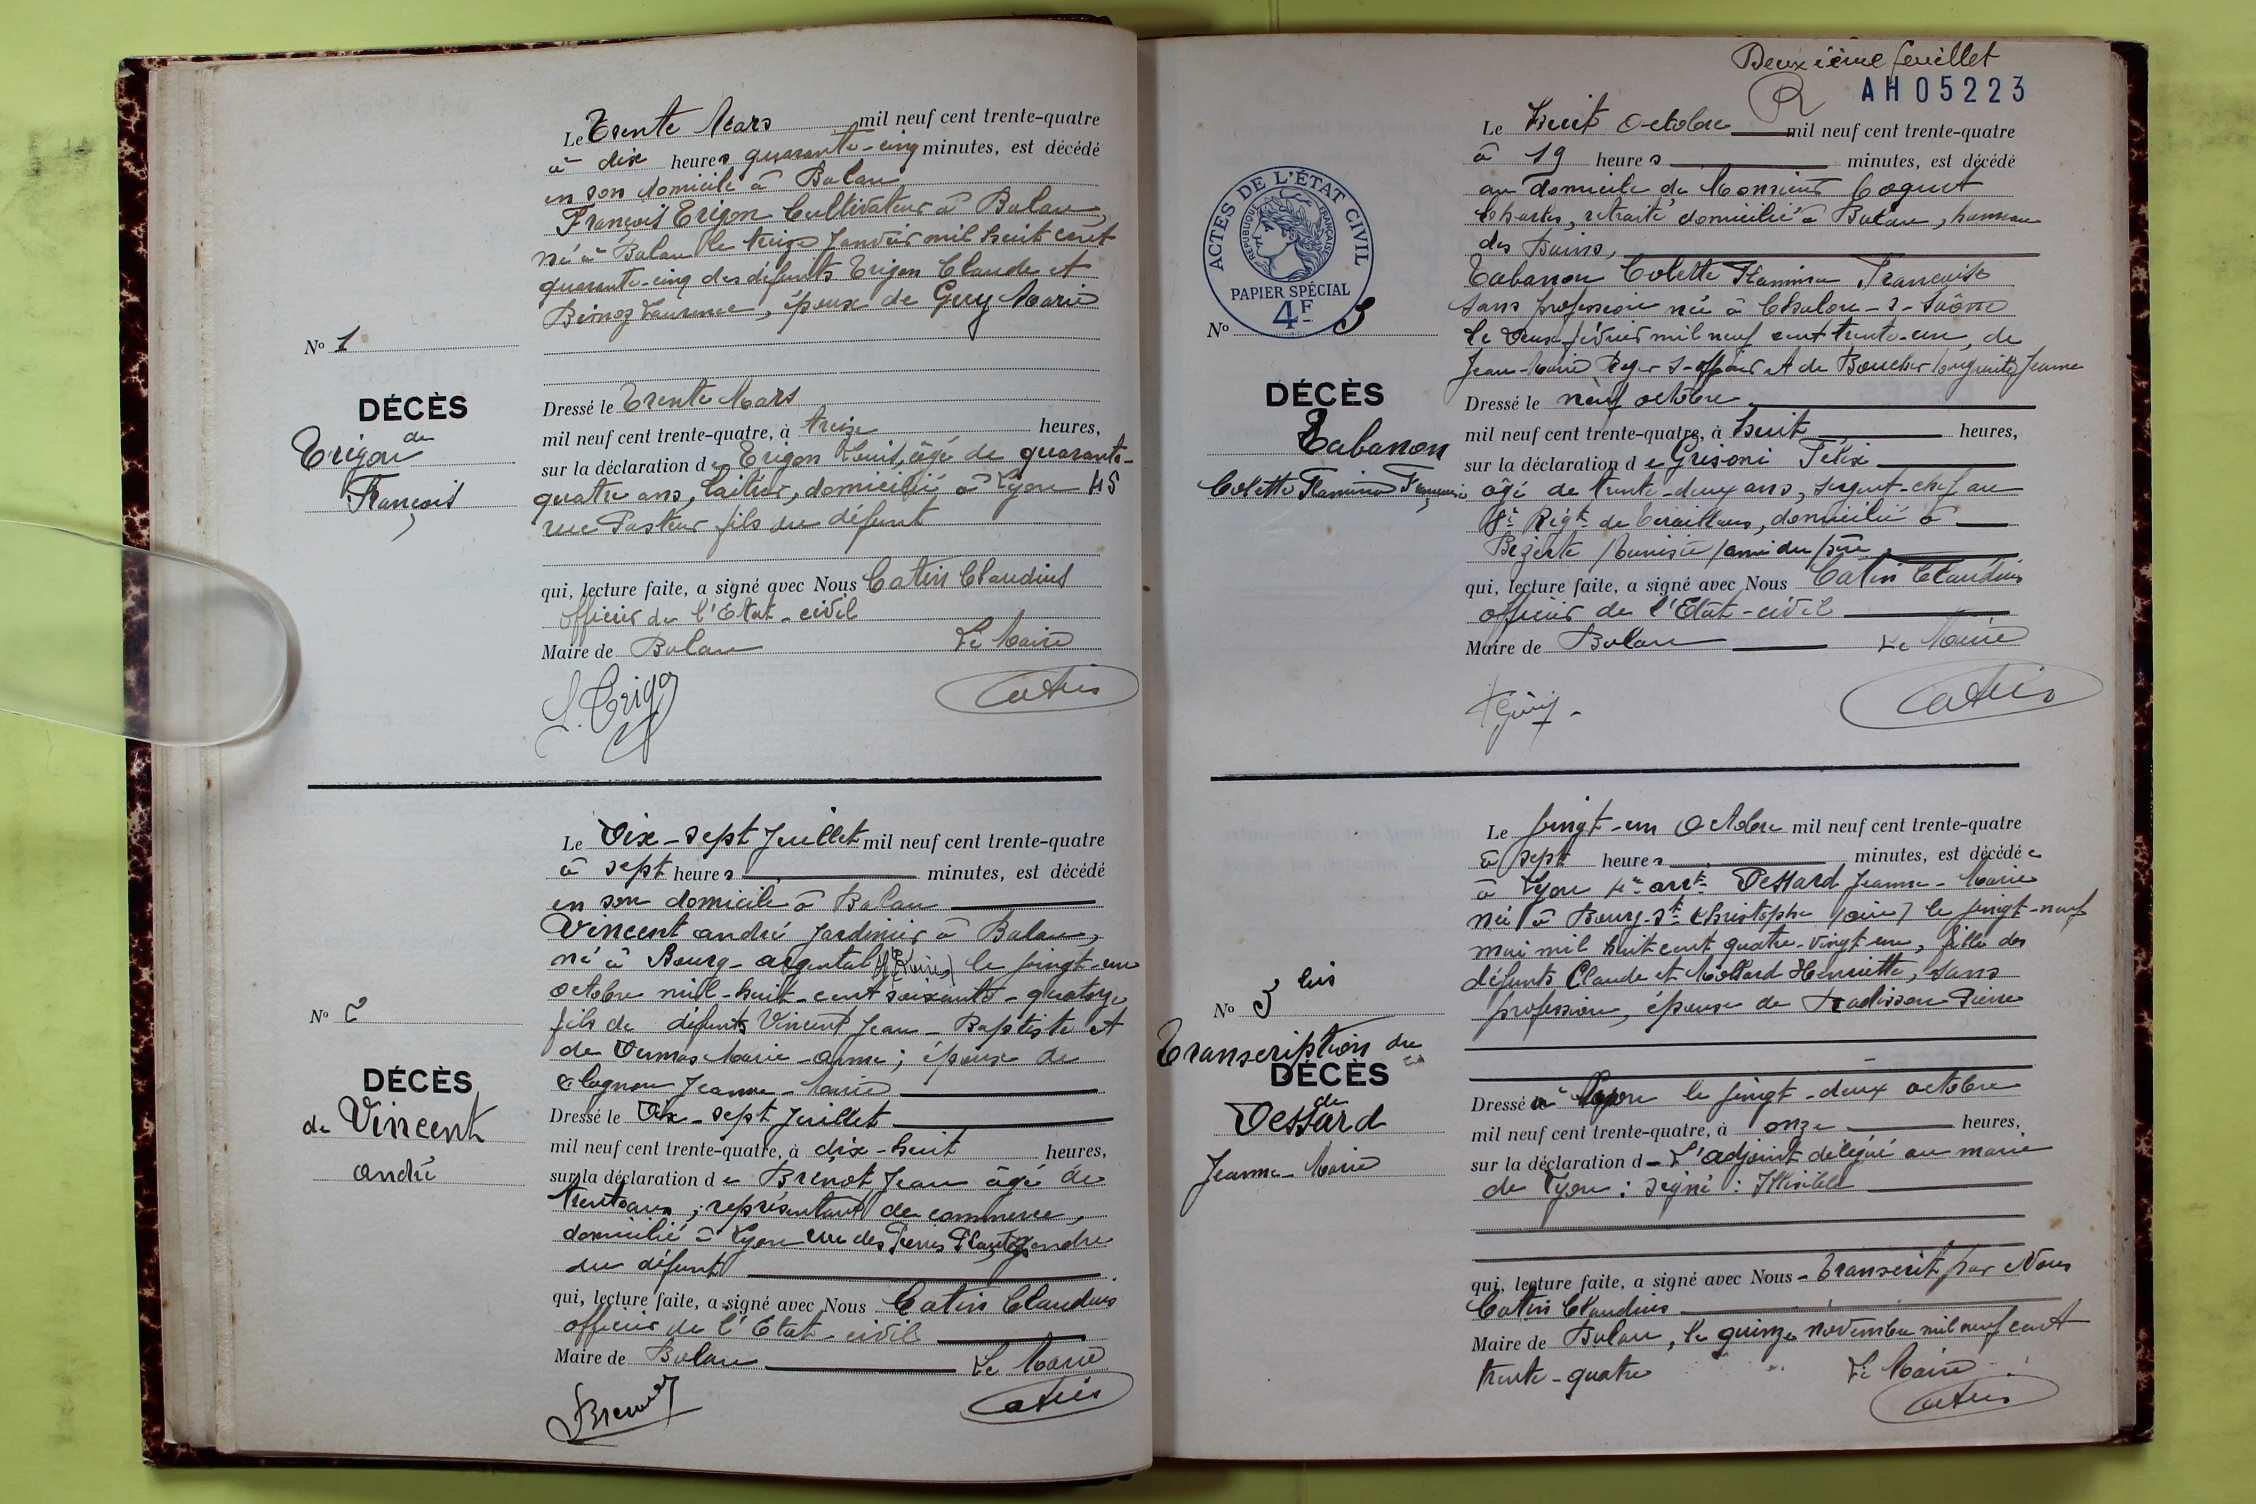 Le Trente Mars mil neuf cent trente-quatre
à dix heures quarante-cinq minutes, est décédé
en son domicile à Balan
François Trigon Cultivateur à Balan,
né à Balan le treize Janvier mil huit cent
quarante-cinq des défunts Trigon Claude et
Laurence, époux de Guy Marie
No 1
DÉCÈS
de
Trigon
François
Dressé le Trente Mars
mil neuf cent trente-quatre, à treize heures,
sur la déclaration de Trigon Louis, âgé de quarante-
quatre ans, laitier, domicilié à Lyon 45
rue Pasteur fils du défunt
qui, lecture faite, a signé avec Nous Catin Claudius
officier de l'Etat-civil
Maire de Balan Le Maire
L. Trigon
Catin
Le Dix-sept Juillet mil neuf cent trente-quatre
à sept heures minutes, est décédé
en son domicile à Balan
Vincent andré Jardinier à Balan,
né à Bourg-argental (Loire) le vingt-un
octobre mil-huit-cent soixante-quatorze
fils de défunts Vincent Jean-Baptiste et
de Dumas Marie-anne; époux de
Jeanne-Marie
No 2
DÉCÈS
de Vincent
andré
Dressé le Dix-sept Juillet
mil neuf cent trente-quatre, à dix-huit heures,
sur la déclaration de Brenot Jean âgé de
trente ans, représentant de commerce,
domicilié à Lyon rue des Pierres Plantées gendre
du défunt
qui, lecture faite, a signé avec Nous Catin Claudius
officier de l'Etat-civil
Maire de Balan Le Maire
Brenot
Catin
Deuxième feuillet
AH05223
Le huit octobre mil neuf cent trente-quatre
à 19 heures minutes, est décédé
au domicile de Monsieur Coquet
Charles, retraité domicilié à Balan, hameau
des bains,
Tabanon Colette Flaminia Françoise
sans profession née à Chalon-s-Saône
le deux février mil neuf cent trente-un, de
Jean-Marie Roger s-officier et de Boucher Marguerite Jeanne
ACTES DE L'ÉTAT CIVIL
RÉPUBLIQUE FRANÇAISE
PAPIER SPÉCIAL
4F
No 3
DÉCÈS
Tabanon
Colette Flaminia Françoise
Dressé le neuf octobre
mil neuf cent trente-quatre, à huit heures,
sur la déclaration de Grisoni Félix
âgé de trente-deux ans, sergent-chef au
8e Régt de Tirailleurs, domicilié à
Bizerte (Tunisie) ami du père
qui, lecture faite, a signé avec Nous Catin Claudius
officier de l'Etat-civil
Maire de Balan Le Maire
Catin
Le vingt-un octobre mil neuf cent trente-quatre
à sept heures minutes, est décédée
à Lyon 4e arrt Dessard Jeanne-Marie
née à Bourg-St Christophe (ain) le vingt-neuf
mai mil huit cent quatre-vingt-un, fille des
défunts Claude et Mollard Henriette, sans
profession, épouse de Radisson Pierre
No 3 bis
Transcription du
DÉCÈS
de
Dessard
Jeanne-Marie
Dressé à Lyon le vingt-deux octobre
mil neuf cent trente-quatre, à onze heures,
sur la déclaration d L'adjoint délégué au maire
de Lyon: signé: Illisible
qui, lecture faite, a signé avec Nous - Transcrit par Nous
Catin Claudius
Maire de Balan, le quinze novembre mil neuf cent
trente-quatre Le Maire
Catin